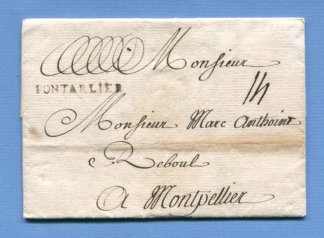 Monsieur
PONTARLIER
14
Monsieur Marc Anthoine
Reboul
A Montpellier